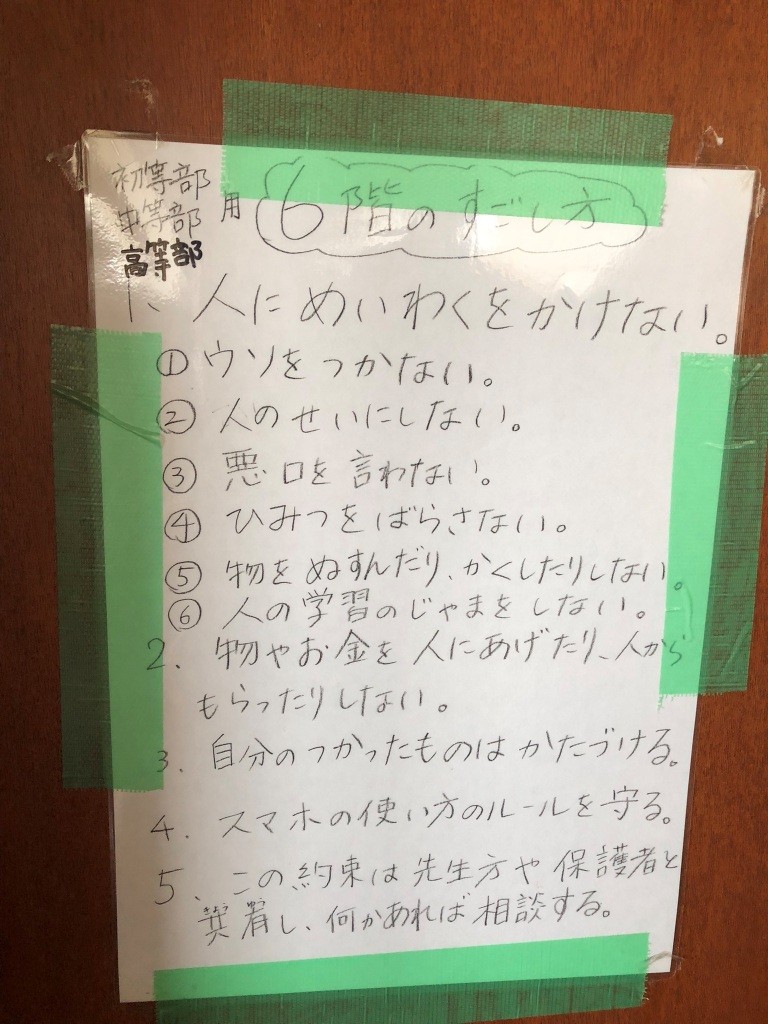 初等部
中等部 用 6階のすごし方
高等部
1. 人にめいわくをかけない。
① ウソをつかない。
② 人のせいにしない。
③ 悪口を言わない。
④ ひみつをばらさない。
⑤ 物をぬすんだり、かくしたりしない。
⑥ 人の学習のじゃまをしない。
2. 物やお金を人にあげたり、人から
もらったりしない。
3. 自分のつかったものはかたづける。
4. スマホの使い方のルールを守る。
5、この約束は先生方や保護者と
し、何かあれば相談する。